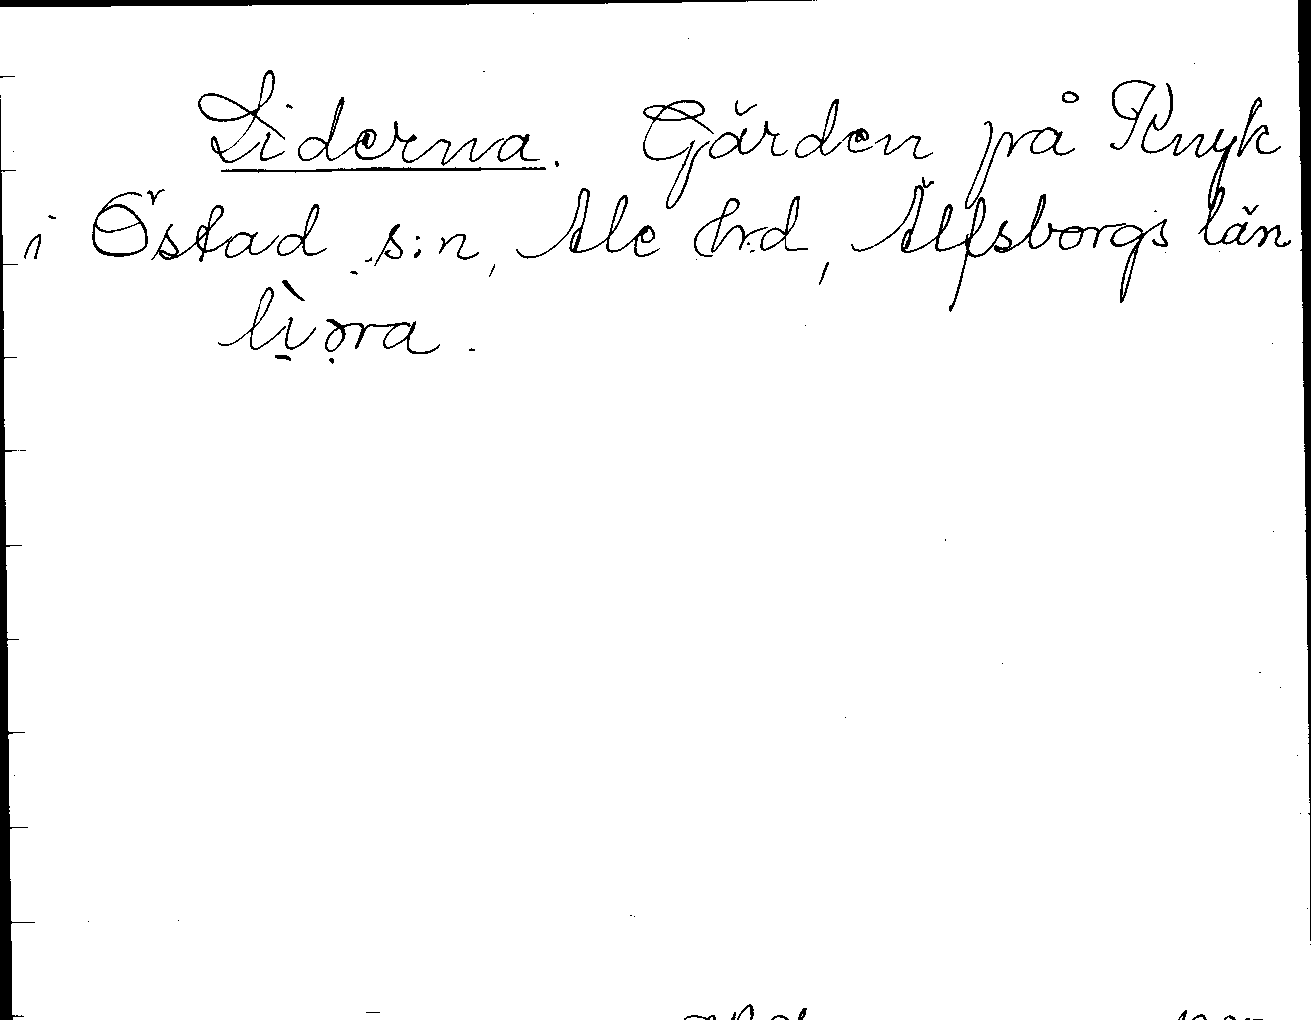 Liderna. Gärden på Knyk
i Östad s:n, Ale hrd, Älfsborgs län
lìǝra.